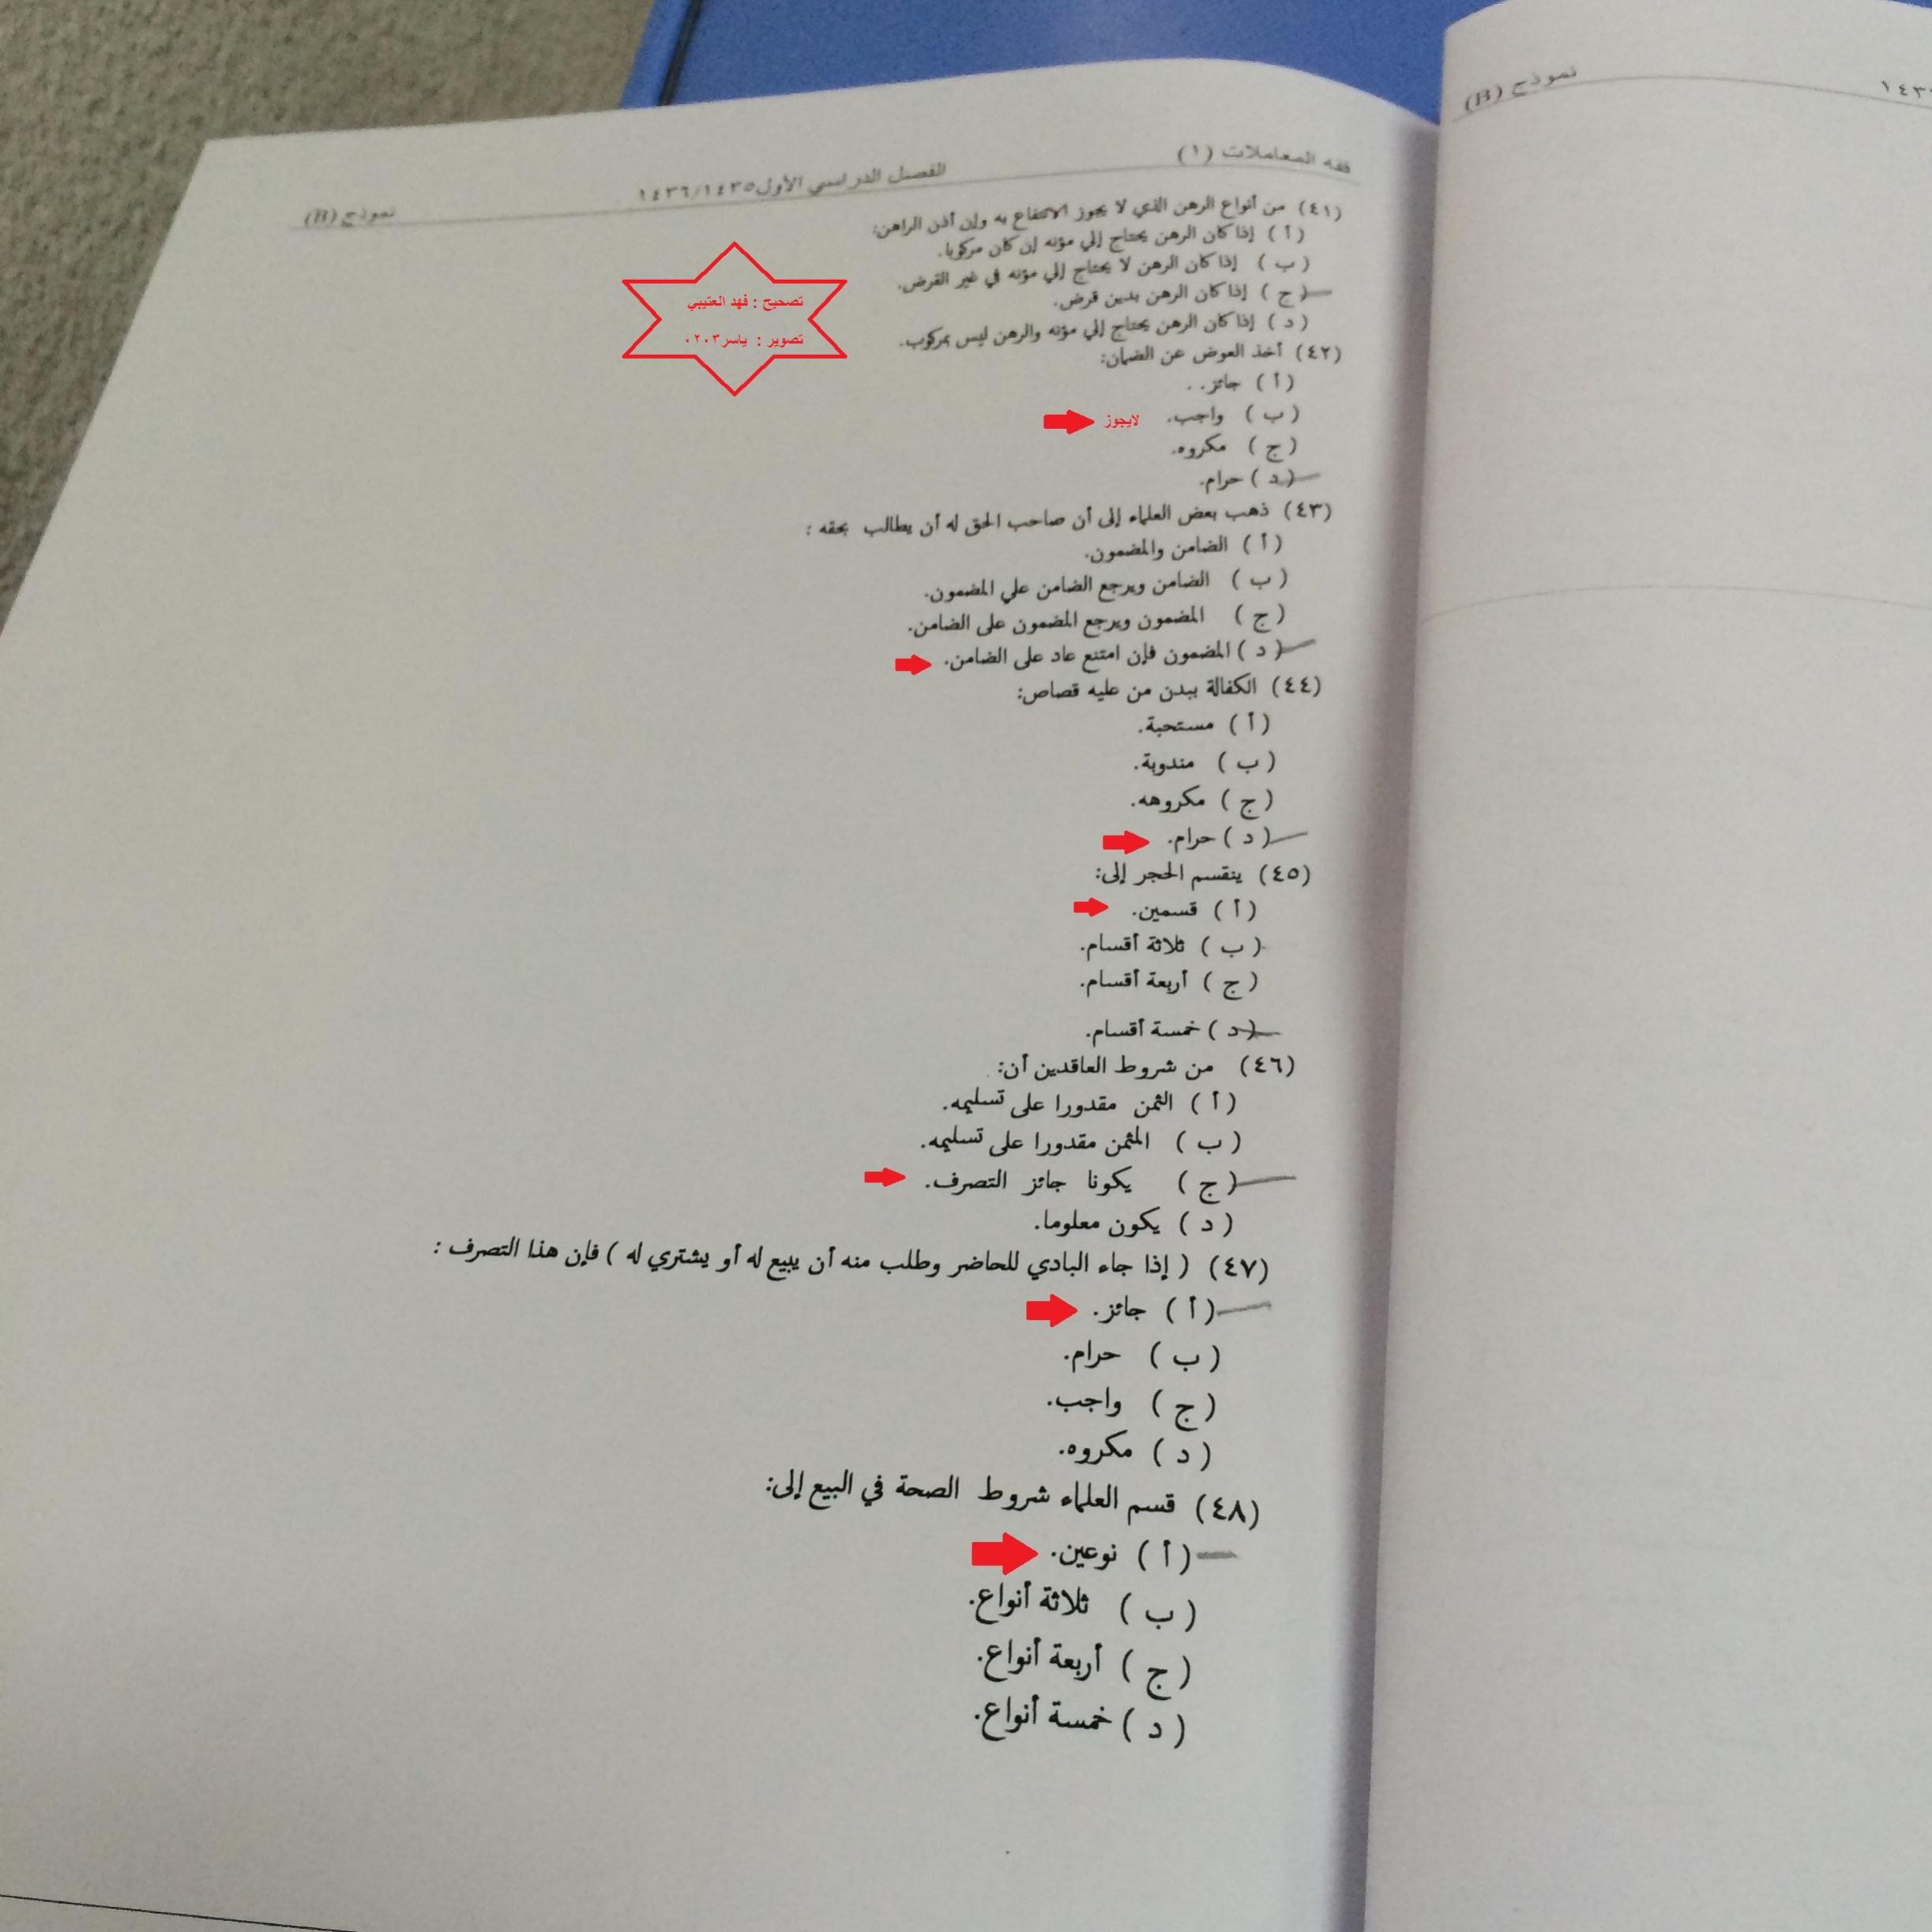 فقه المعاملات (١)
الفصل الدراسي الأول١٤٣٦/١٤٣٥
نموذج (B)
(٤١) من أنواع الرهن الذي لا يجوز الانتفاع به وإن أذن الراهن:
( أ ) إذا كان الرهن يحتاج إلي مؤنه إن كان مركوبا.
( ب ) إذا كان الرهن لا يحتاج إلي مؤنه في غير القرض.
( ج ) إذا كان الرهن بدين قرض.
( د ) إذا كان الرهن يحتاج إلي مؤنه والرهن ليس بمركوب.
تصحيح : فهد العتيبي
تصوير : ياسر٠٢٠٣
(٤٢) أخذ العوض عن الضمان:
( أ ) جائز. .
( ب ) واجب. لايجوز
( ج ) مكروه.
( د ) حرام.
(٤٣) ذهب بعض العلماء إلى أن صاحب الحق له أن يطالب بحقه :
( أ ) الضامن والمضمون.
( ب ) الضامن ويرجع الضامن علي المضمون.
( ج ) المضمون ويرجع المضمون على الضامن.
( د ) المضمون فإن امتنع عاد على الضامن.
(٤٤) الكفالة ببدن من عليه قصاص:
( أ ) مستحبة.
( ب ) مندوبة.
( ج ) مكروهه.
( د ) حرام.
(٤٥) ينقسم الحجر إلى:
( أ ) قسمين.
( ب ) ثلاثة أقسام.
( ج ) أربعة أقسام.
( د ) خمسة أقسام.
(٤٦) من شروط العاقدين أن:
( أ ) الثمن مقدورا على تسليمه.
( ب ) المثمن مقدورا على تسليمه.
( ج ) يكونا جائز التصرف.
( د ) يكون معلوما.
(٤٧) ( إذا جاء البادي للحاضر وطلب منه أن يبيع له أو يشتري له ) فإن هذا التصرف :
( أ ) جائز.
( ب ) حرام.
( ج ) واجب.
( د ) مكروه.
(٤٨) قسم العلماء شروط الصحة في البيع إلى:
( أ ) نوعين.
( ب ) ثلاثة أنواع.
( ج ) أربعة أنواع.
( د ) خمسة أنواع.
نموذج (B)